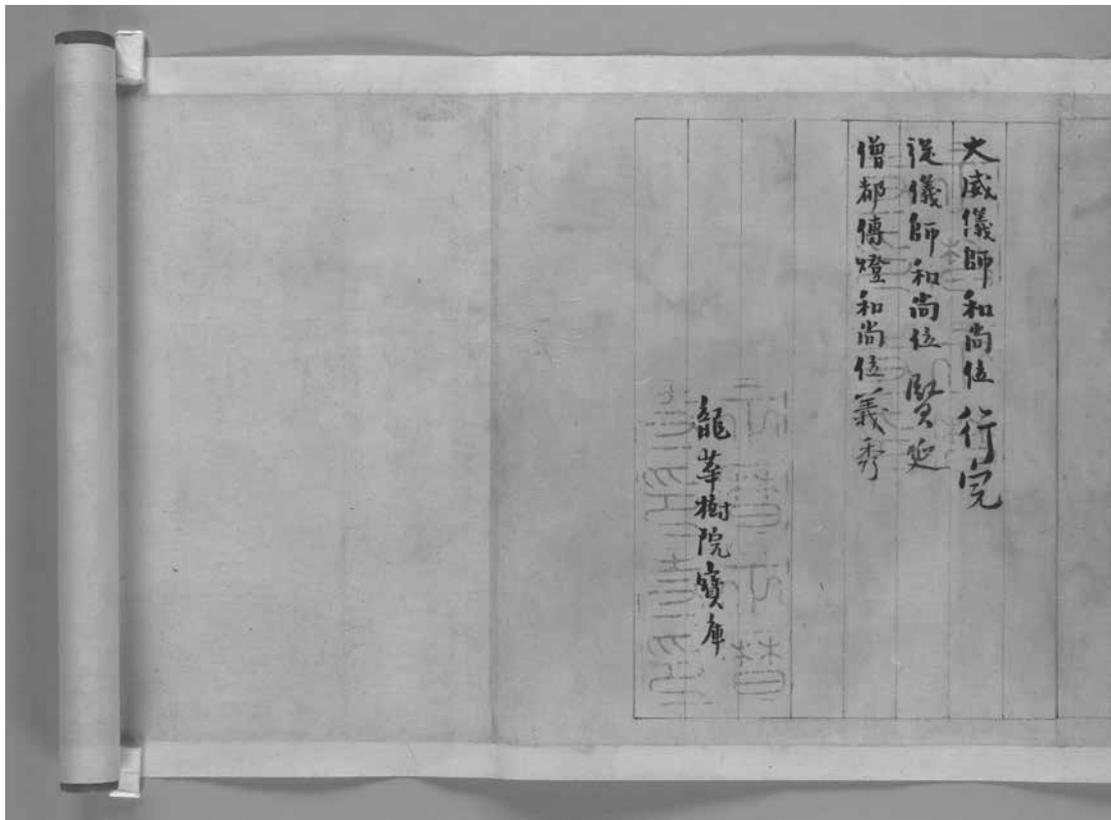 大威儀師和尚位行完
従儀師和尚位賢延
僧都傳燈和尚位義秀
龍華樹院寶庫